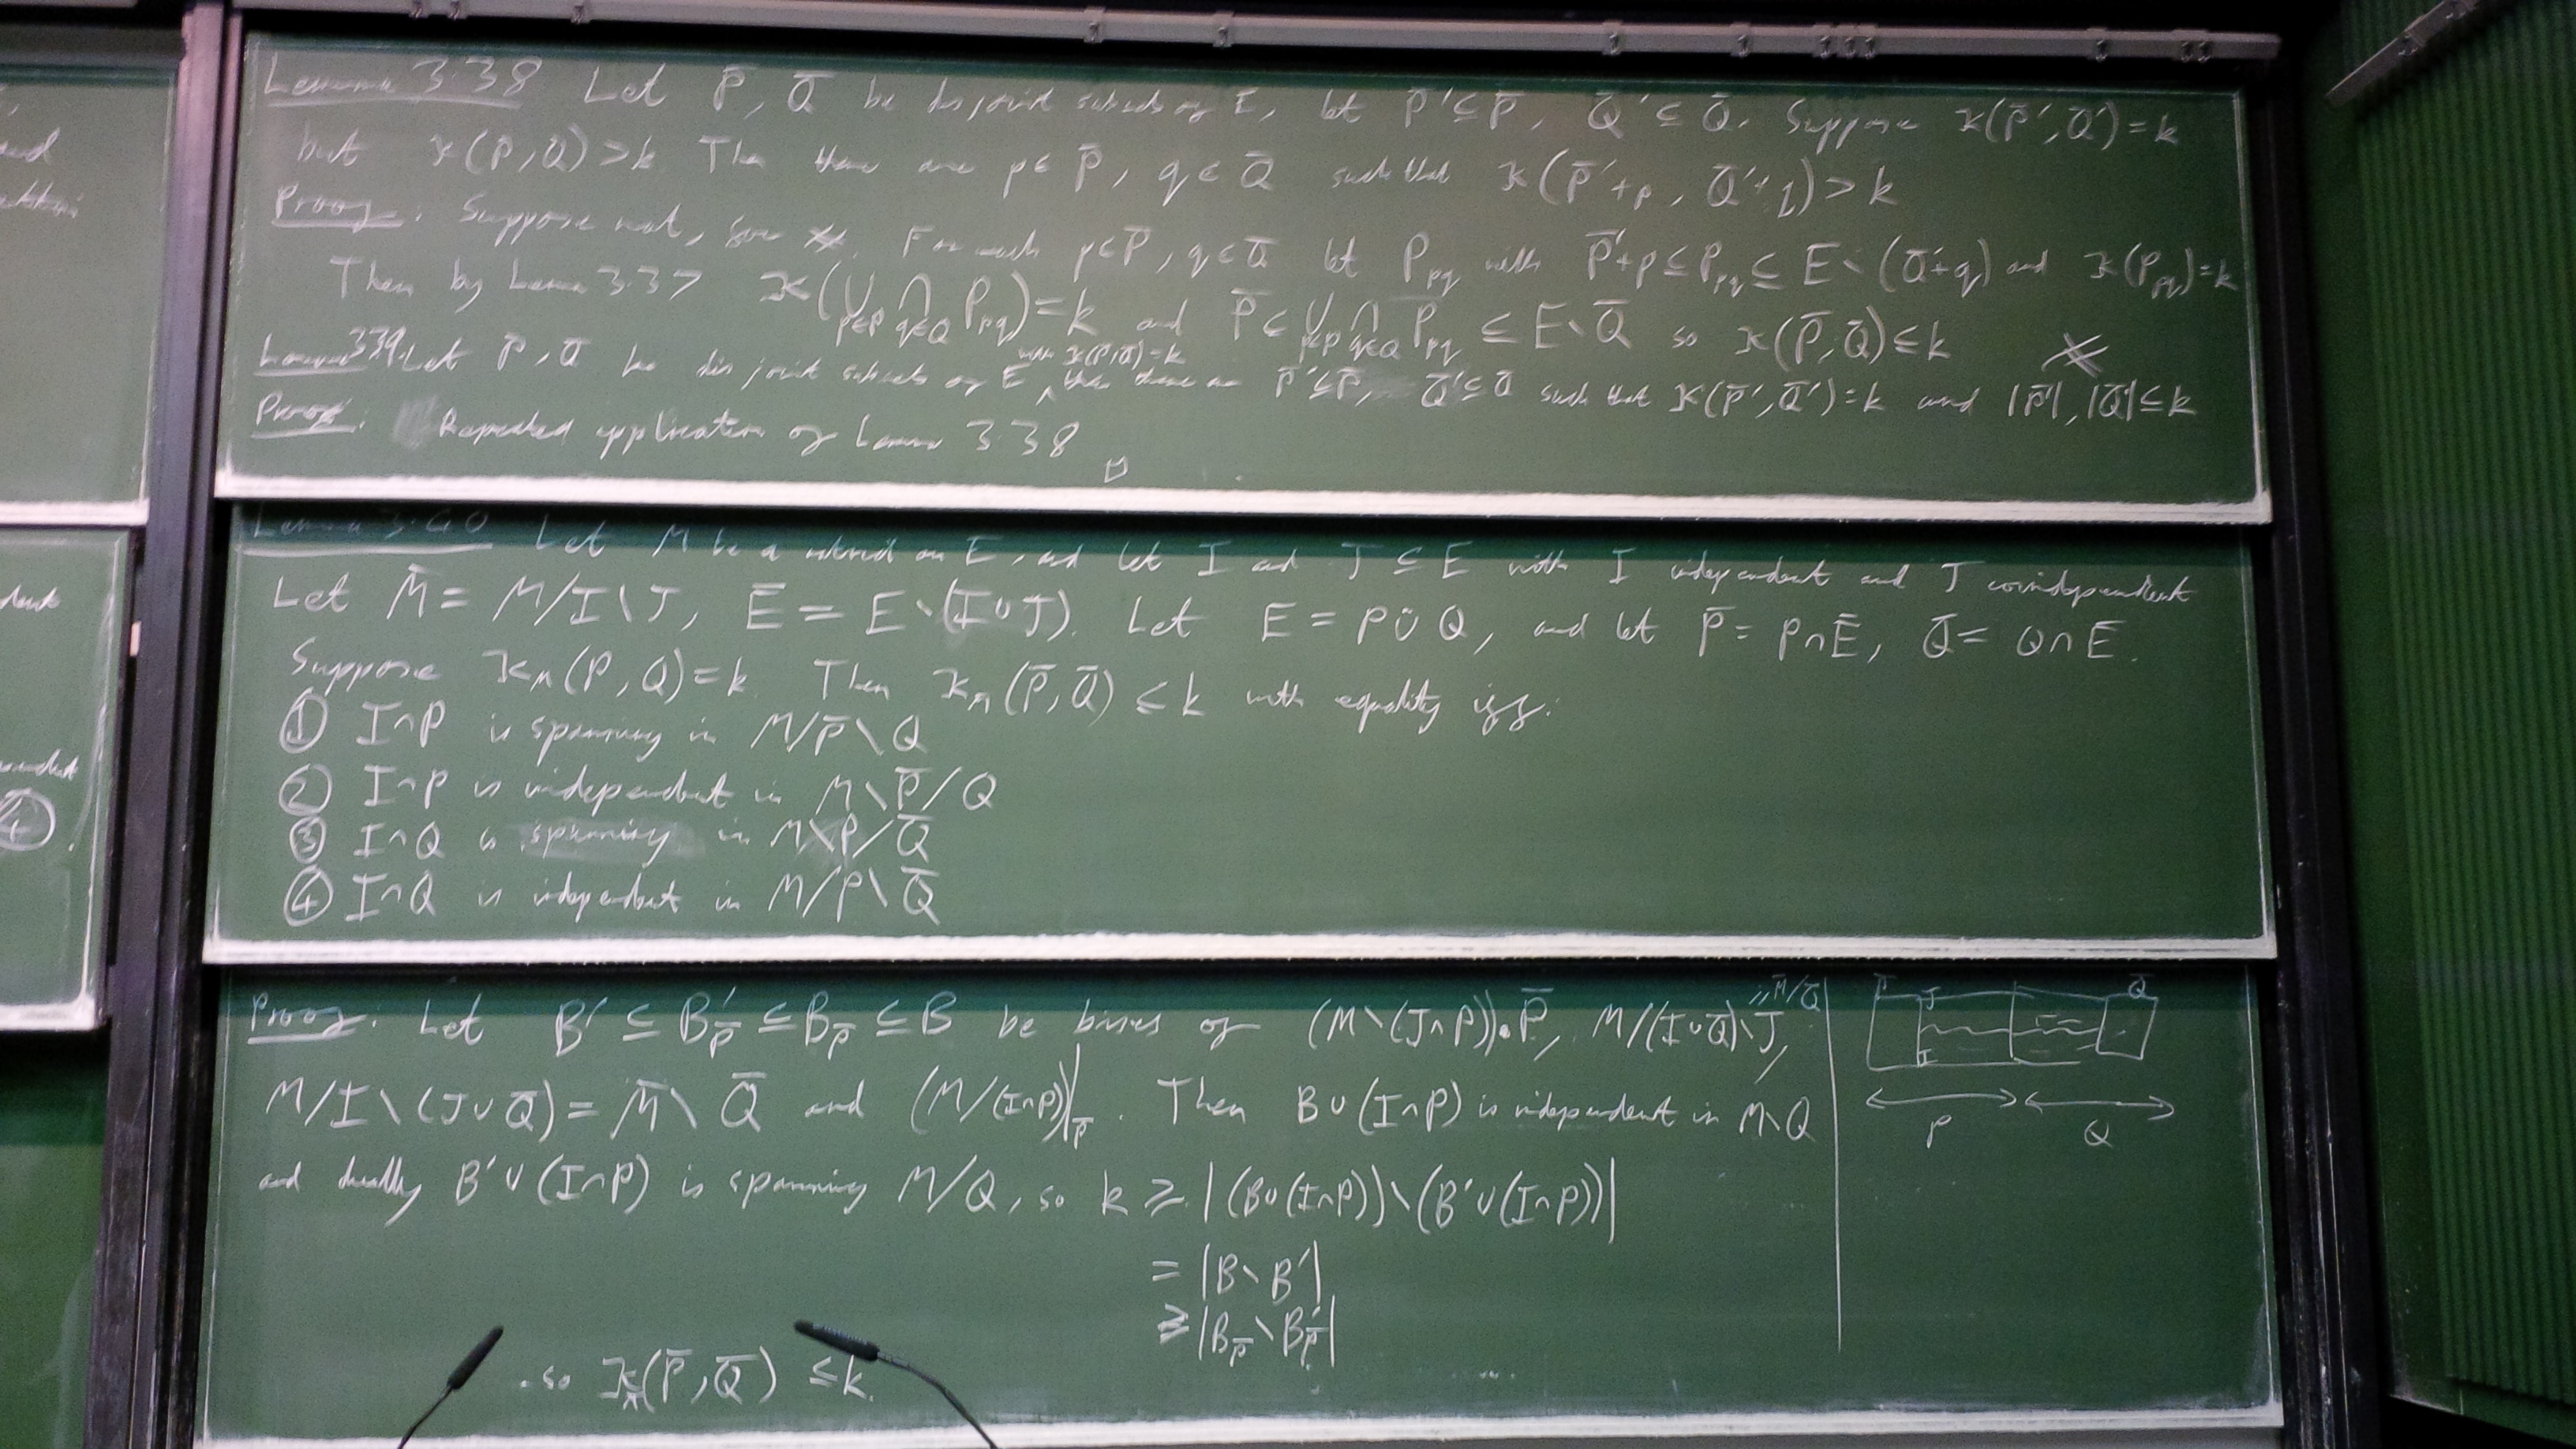 Lemma 3.38 Let P̄, Q̄ be disjoint subsets of E, let P̄' ⊆ P̄, Q̄' ⊆ Q̄. Suppose κ(P̄', Q̄') = k
but κ(P̄, Q̄) > k. Then there are p ∈ P̄, q ∈ Q̄ such that κ(P̄'+p, Q̄'+q) > k
Proof: Suppose not, for ※. For each p ∈ P̄, q ∈ Q̄ let P_pq with P̄'+p ⊆ P_pq ⊆ E∖(Q̄'+q) and κ(P_pq) = k
Then by Lemma 3.37 κ(⋃_{p∈P̄} ⋂_{q∈Q̄} P_pq) = k and P̄ ⊆ ⋃_{p∈P̄} ⋂_{q∈Q̄} P_pq ⊆ E∖Q̄ so κ(P̄, Q̄) ≤ k ※
Lemma 3.39. Let P̄, Q̄ be disjoint subsets of E, with κ(P̄,Q̄)=k then there are P̄' ⊆ P̄, Q̄' ⊆ Q̄ such that κ(P̄', Q̄') = k and |P̄'|, |Q̄'| ≤ k
Proof: Repeated application of Lemma 3.38 □
Lemma 3.40 Let M be a matroid on E, and let I and J ⊆ E with I independent and J coindependent
Let M̄ = M/I\J, Ē = E∖(I∪J). Let E = P ∪̇ Q, and let P̄ = P∩Ē, Q̄ = Q∩Ē.
Suppose κ_M(P, Q) = k. Then κ_M̄(P̄, Q̄) ≤ k with equality iff:
① I∩P is spanning in M/P̄\Q
② I∩P is independent in M\P̄/Q
③ I∩Q is spanning in M\P/Q̄
④ I∩Q is independent in M/P\Q̄
Proof: Let B' ⊆ B'_P̄ ⊆ B_P̄ ⊆ B be bases of (M\(J∩P)).P̄, M/(I∪Q̄)\J, = M̄/Q̄
M/I\(J∪Q̄) = M̄\Q̄ and (M/(I∩P))|_P̄. Then B∪(I∩P) is independent in M\Q
and dually B'∪(I∩P) is spanning M/Q, so k ≥ |(B∪(I∩P))∖(B'∪(I∩P))|
= |B∖B'|
≥ |B_P̄∖B'_P̄|
so κ_M̄(P̄, Q̄) ≤ k.
P̄ J Q̄
I
P Q